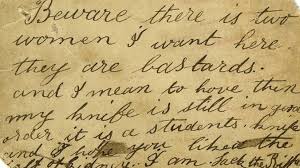 Beware there is two
women I want here
they are bastards.
and I mean to have them
my knife is still in good
order it is a students knife
and I hope you liked the
half of kidney. I am Jack the